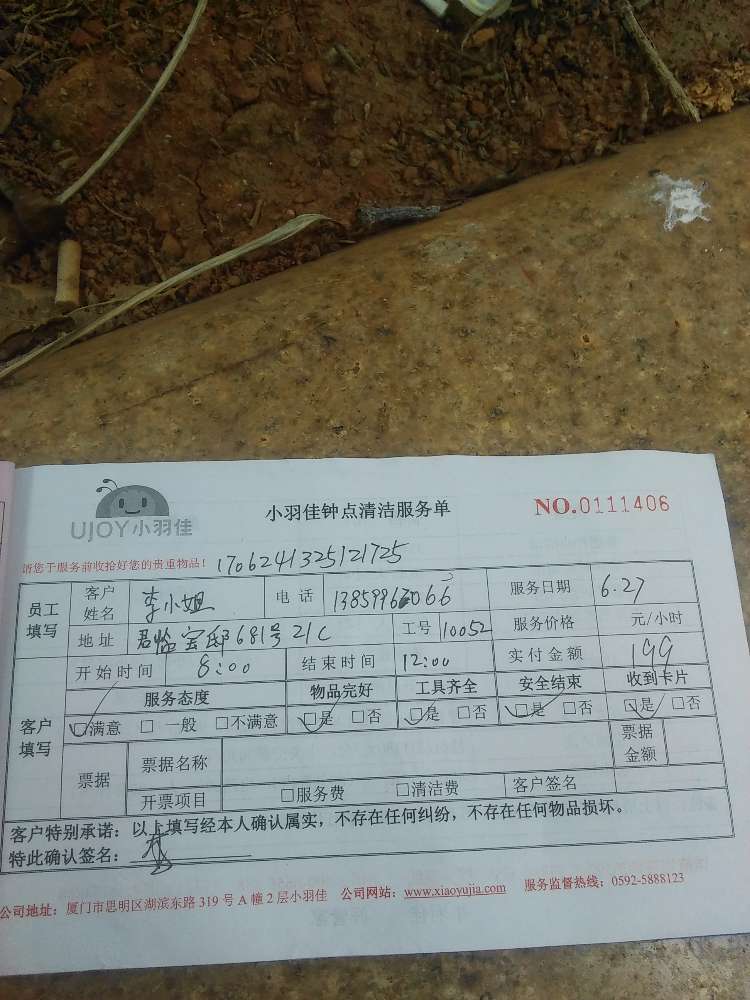 UJOY小羽佳
小羽佳钟点清洁服务单
NO.0111406
请您于服务前收拾好您的贵重物品！ 1706241325121725
员工填写 客户姓名 李小姐 电话 服务日期 6.27
地址 君临宝邸681号21C 工号 10052 服务价格 元/小时
客户填写 开始时间 8:00 结束时间 12:00 实付金额 199
服务态度 物品完好 工具齐全 安全结束 收到卡片
☑满意 □一般 □不满意 ☑是 □否 ☑是 □否 ☑是 □否 ☑是 □否
票据 票据名称 票据金额
开票项目 □服务费 □清洁费 客户签名
客户特别承诺：以上填写经本人确认属实，不存在任何纠纷，不存在任何物品损坏。
特此确认签名：
公司地址：厦门市思明区湖滨东路 319 号 A 幢 2 层小羽佳 公司网站：www.xiaoyujia.com 服务监督热线：0592-5888123